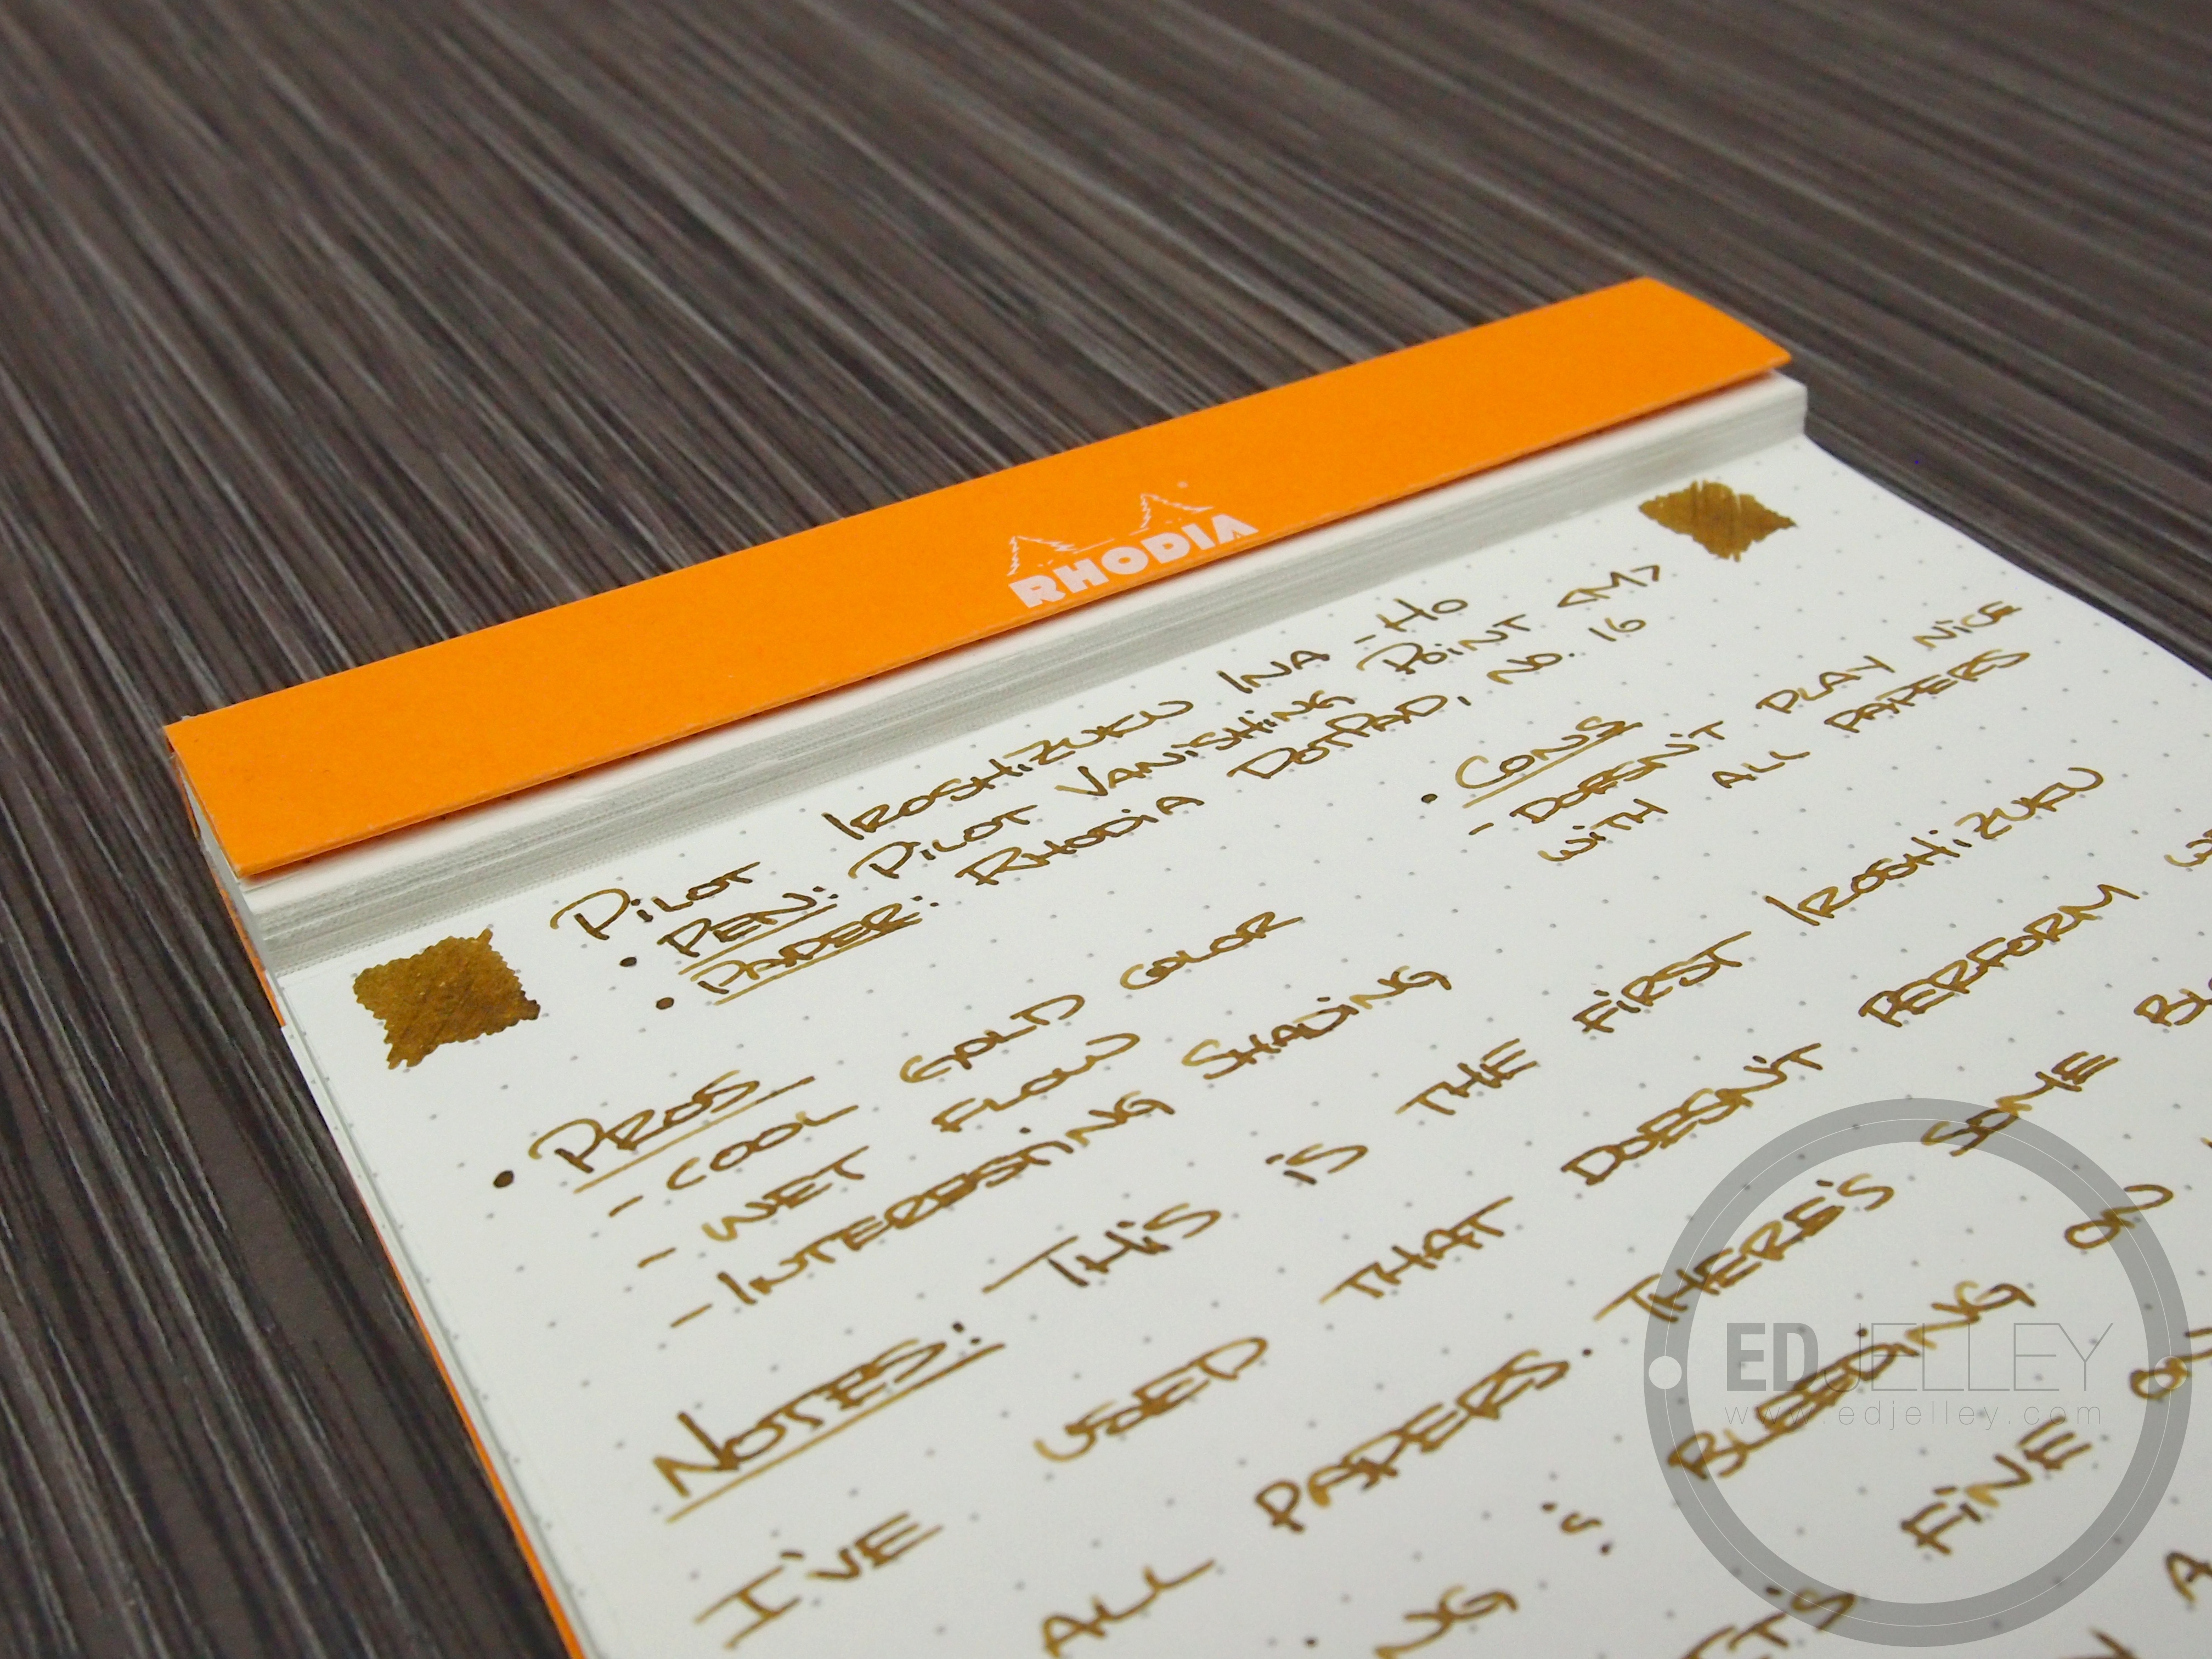 RHODIA
PILOT IROSHIZUKU INA-HO
• PEN: PILOT VANISHING POINT <M>
• PAPER: RHODIA DOTPAD, NO. 16
• PROS
- COOL GOLD COLOR
- WET FLOW
- INTERESTING SHADING
• CONS
- DOESN'T PLAY NICE
WITH ALL PAPERS
NOTES: - THIS IS THE FIRST IROSHIZUKU
I'VE USED THAT DOESN'T PERFORM
ALL PAPERS. THERE'S SOME
BLEEDING ON
FINE
EDJELLEY
www.edjelley.com